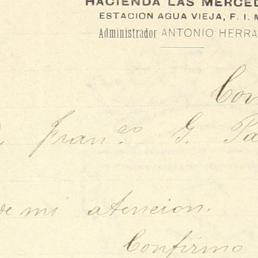 HACIENDA LAS MERCED
ESTACION AGUA VIEJA, F. I. M
Administrador ANTONIO HERRA
Con
Fran.co G. Pa
de mi atencion.
Confirmo